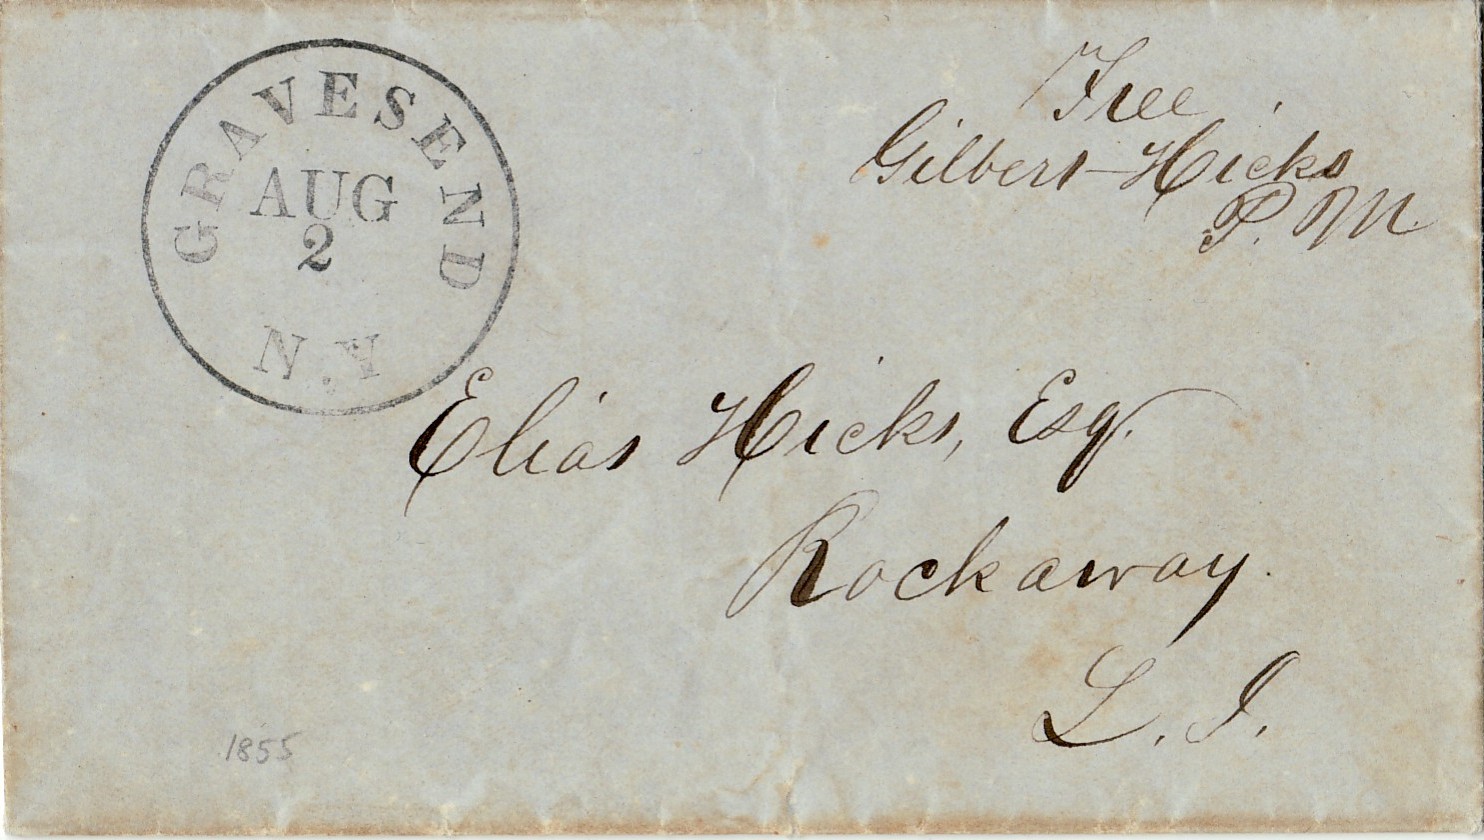 GRAVESEND
AUG
2
N.Y
Free
Gilbert Hicks
P. M.
Elias Hicks, Esq.
Rockaway.
L. I.
1855